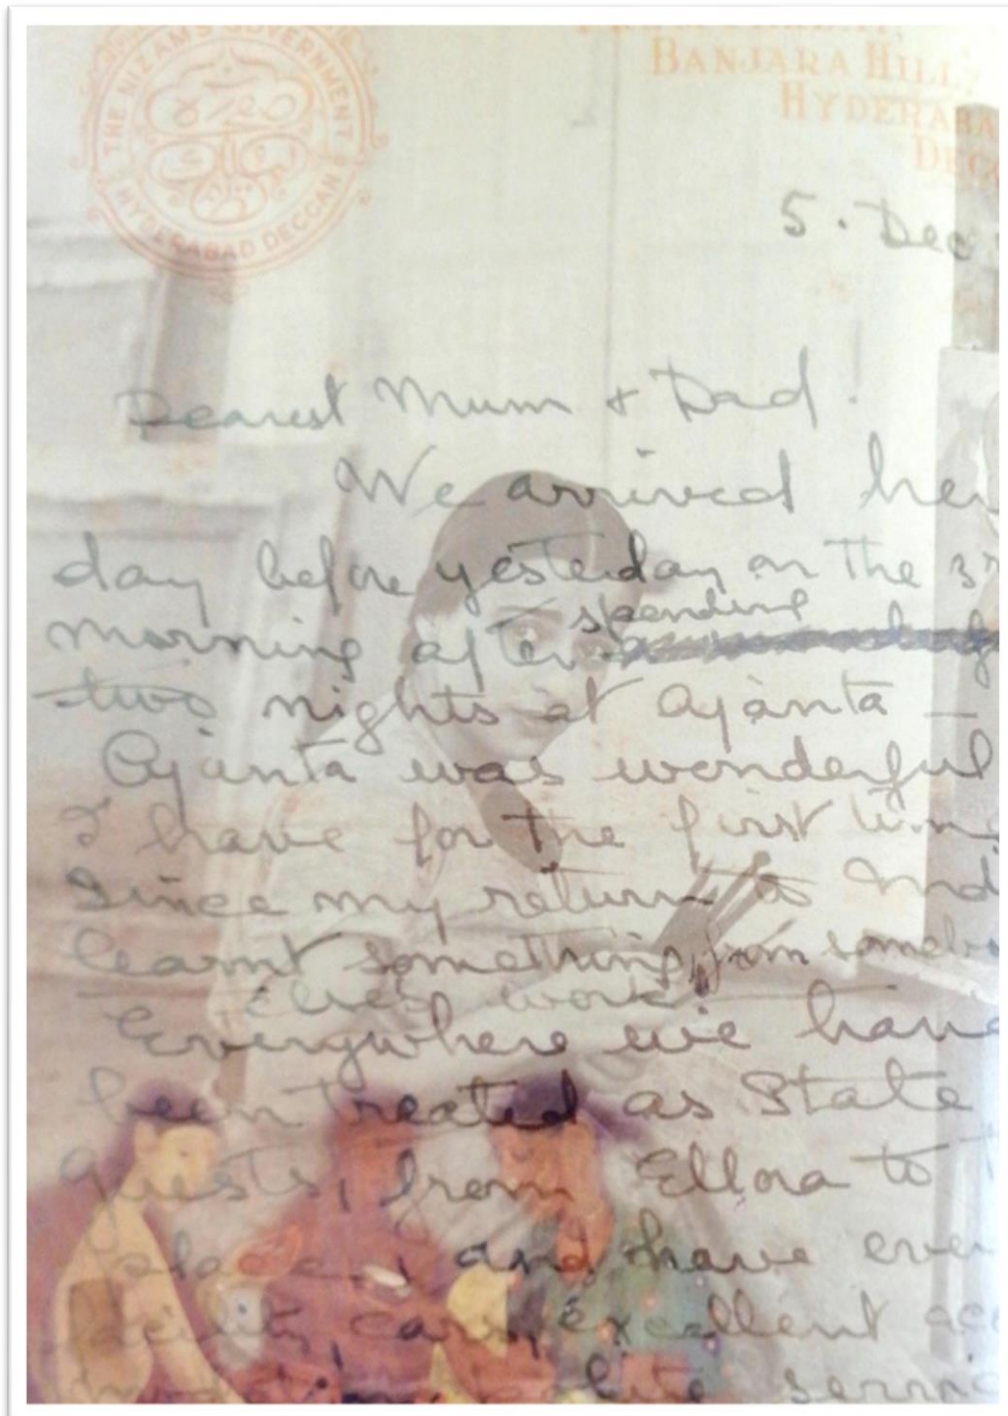 THE NIZAM'S GOVERNMENT
HYDERABAD DECCAN
BANJARA HILL
HYDERABA
DECC
5. Dec
Dearest Mum & Dad.
We arrived her
day before yesterday on the 3r
spending
morning after
two nights at Ajanta —
Ajanta was wonderful
I have for the first tim
Since my return to Indi
learnt something from someb
else's work.
Everywhere we have
been treated as State
guests, from Ellora to
and have eve
cars, excellent acc
polite servic